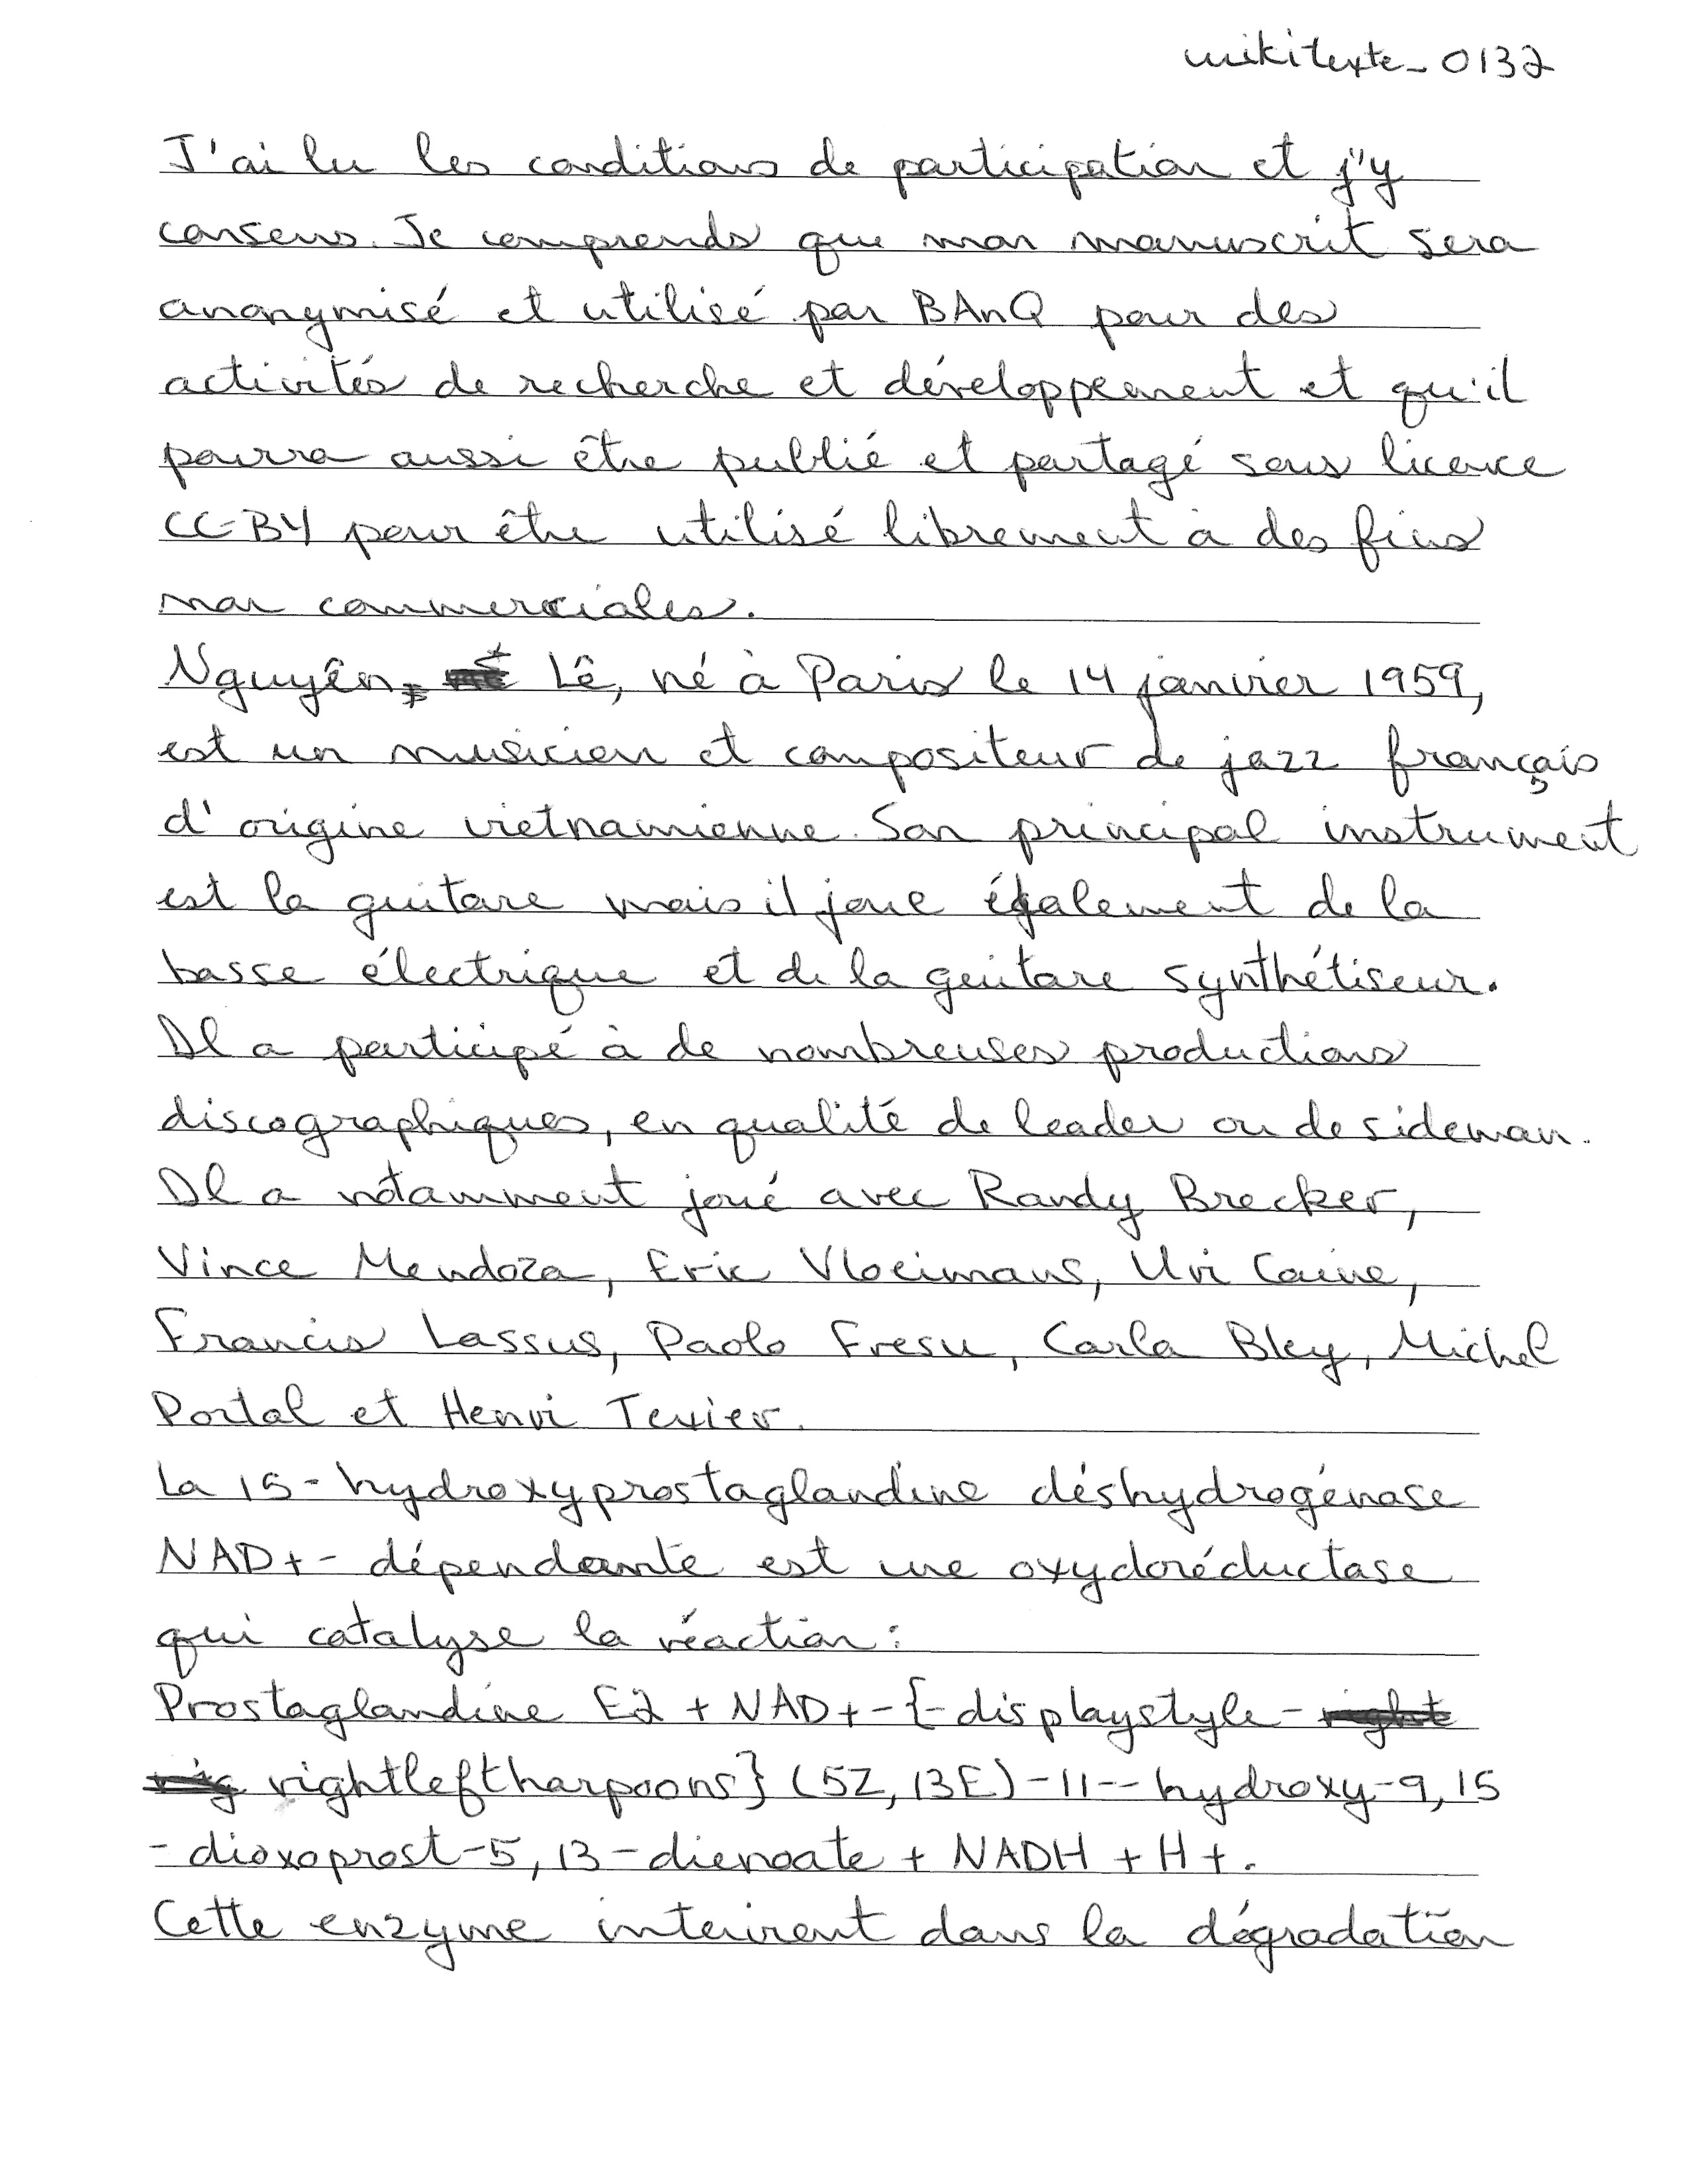 wikitexte_0132
J'ai lu les conditions de participation et j'y
consens. Je comprends que mon manuscrit sera
anonymisé et utilisé par BAnQ pour des
activités de recherche et développement et qu'il
pourra aussi être publié et partagé sous licence
CC-BY pour être utilisé librement à des fins
non commerciales.
Nguyên Lê, né à Paris le 14 janvier 1959,
est un musicien et compositeur de jazz français
d'origine vietnamienne. Son principal instrument
est la guitare mais il joue également de la
basse électrique et de la guitare synthétiseur.
Il a participé à de nombreuses productions
discographiques, en qualité de leader ou de sideman.
Il a notamment joué avec Randy Brecker,
Vince Mendoza, Eric Vloeimans, Uri Caine,
Francis Lassus, Paolo Fresu, Carla Bley, Michel
Portal et Henri Texier.
La 15-hydroxyprostaglandine déshydrogénase
NAD+-dépendante est une oxydoréductase
qui catalyse la réaction:
Prostaglandine E2 + NAD+-{-displaystyle-
rightleftharpoons} (5Z,13E)-11--hydroxy-9,15
-dioxoprost-5,13-dienoate + NADH + H+.
Cette enzyme intervient dans la dégradation